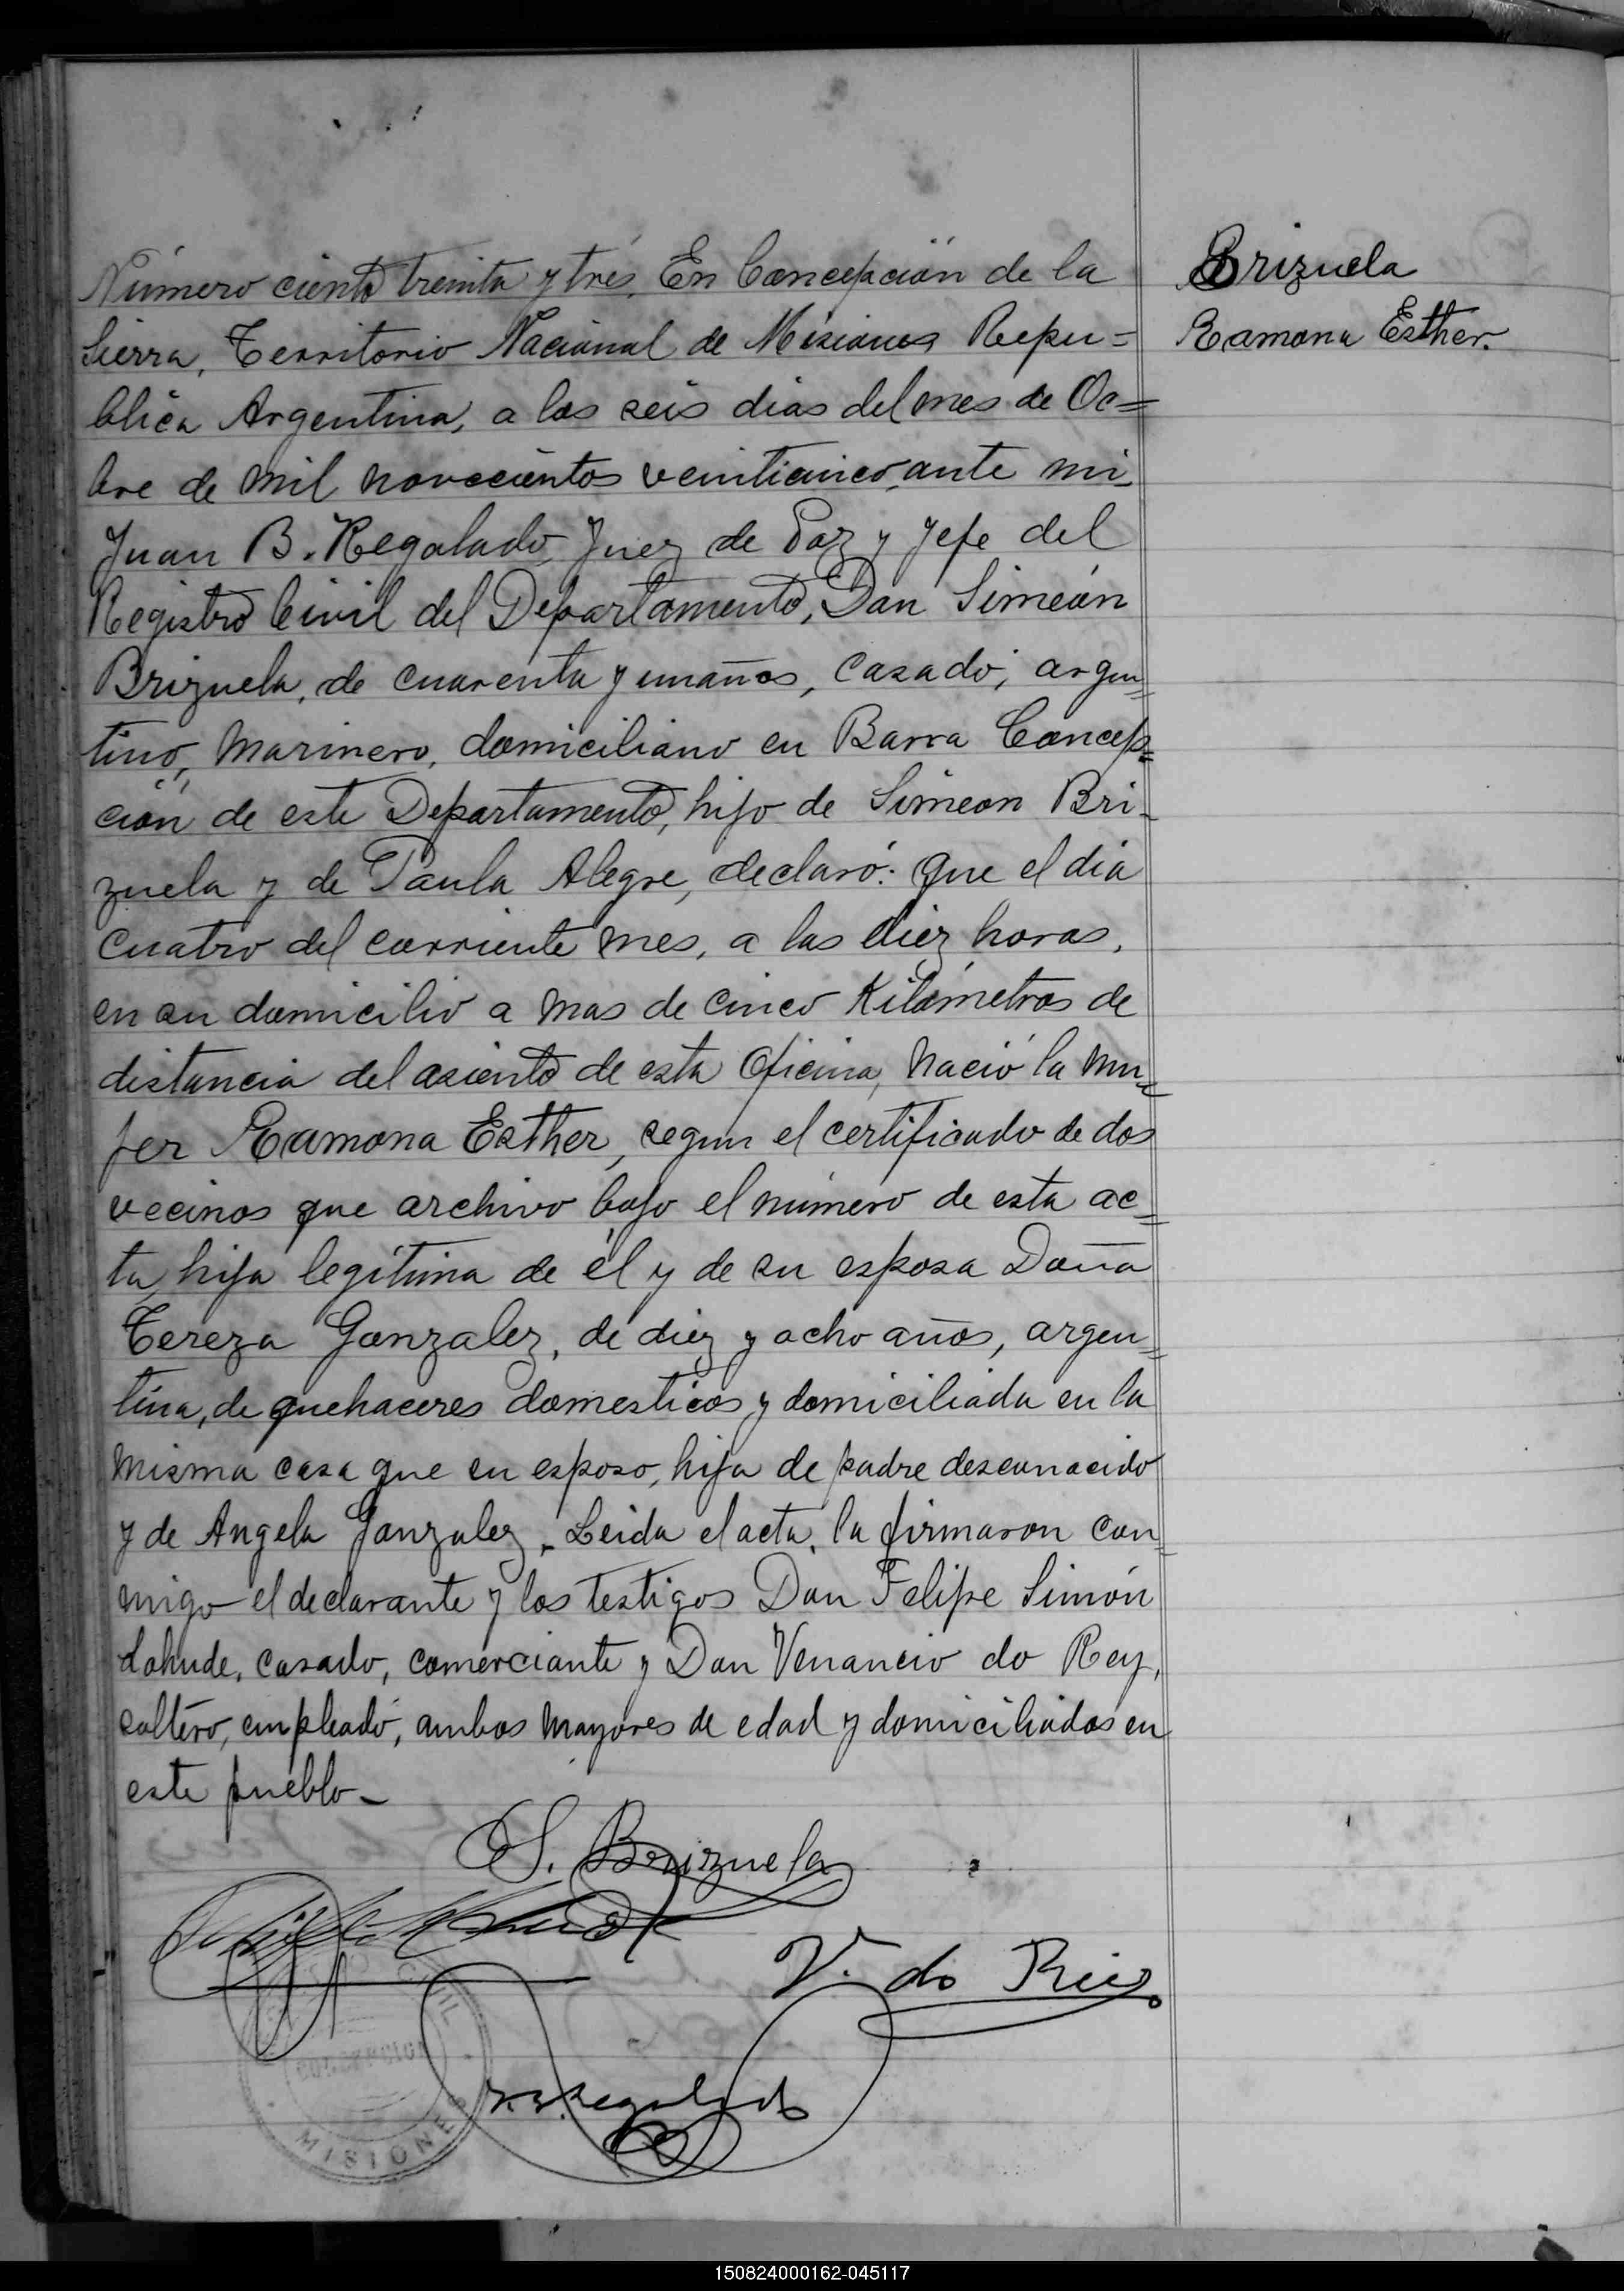 Número ciento treinta y tres. En Concepción de la
Sierra, Territorio Nacional de Misiones Repu=
blica Argentina, a los seis dias del mes de Oc=
bre de mil novecientos veinticinco, ante mi
Juan B. Regalado, Juez de Paz y Jefe del
Registro Civil del Departamento, Don Simeón
Brizuela, de cuarenta y un años, casado, argen=
tino, marinero, domiciliano en Barra Concep=
ción de este Departamento, hijo de Simeon Bri-
zuela y de Paula Alegre, declaró: Que el dia
cuatro del corriente mes, a las diez horas,
en su domicilio a mas de cinco Kilómetros de
distancia del asiento de esta Oficina, nació la mu=
jer Ramona Esther, segun el certificado de dos
vecinos que archivo bajo el número de esta ac=
ta, hija legítima de él y de su esposa Doña
Tereza Gonzalez, de diez y ocho años, argen=
tina, de quehaceres domesticos y domiciliada en la
misma casa que su esposo, hija de padre desconocido
y de Angela Gonzalez. Leida el acta, la firmaron con=
migo el declarante y los testigos Don Felipe Simón
Lahude, casado, comerciante y Don Venancio do Rey,
soltero, empleado, ambos mayores de edad y domiciliados en
este pueblo-
S. Brizuela
V. do Reis
Regalado
CIVIL
CONCEPCION
MISIONES
Brizuela
Ramona Esther.
150824000162-045117